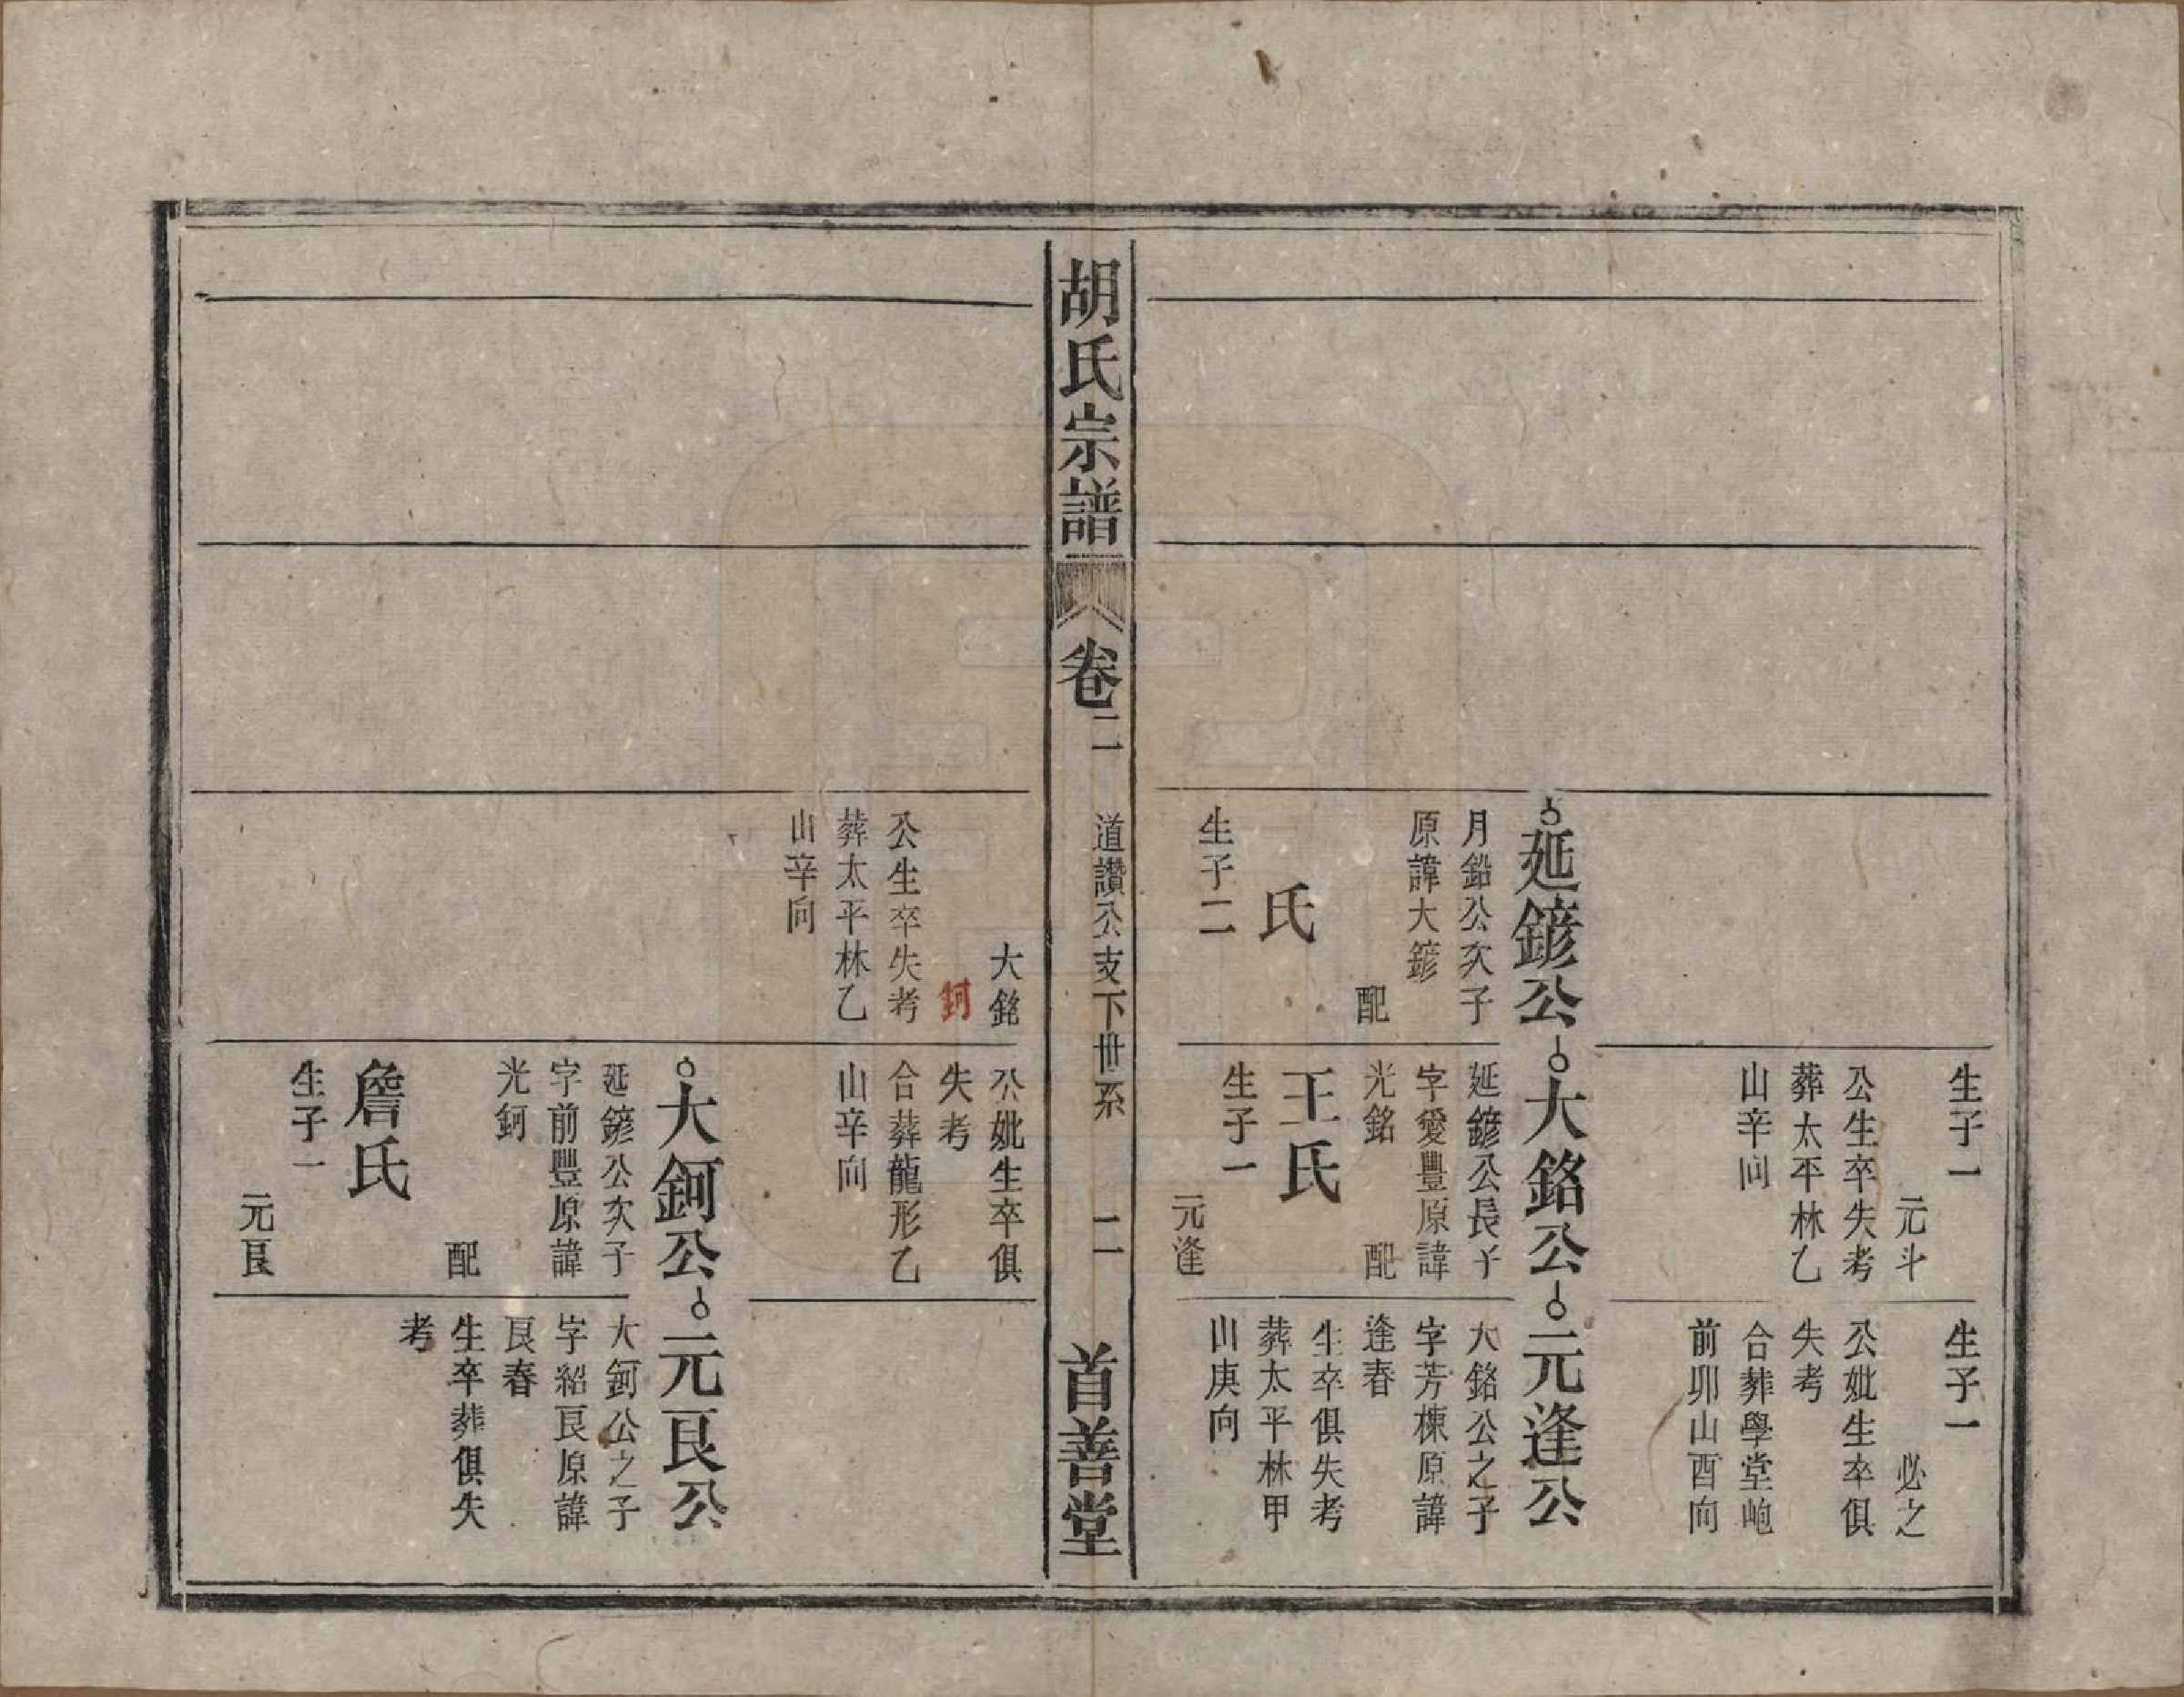 生子一
元斗
公生卒失考
葬太平林乙
山辛向
生子一
必之
公妣生卒俱
失考
合葬學堂岇
前卯山酉向
延鏪公
月鉛公次子
原諱大鏪
配
氏
生子二
大銘公
延鏪公長子
字愛豐原諱
光銘
配
王氏
生子一
元逢
元逢公
大銘公之子
字芳棟原諱
逢春
生卒俱失考
葬太平林甲
山庚向
胡氏宗譜
卷二
道讚公支下世系
二
首善堂
大銘
鈳
公生卒失考
葬太平林乙
山辛向
公妣生卒俱
失考
合葬龍形乙
山辛向
大鈳公
延鏪公次子
字前豐原諱
光鈳
配
詹氏
生子一
元艮
元艮公
大鈳公之子
字紹艮原諱
艮春
生卒葬俱失
考